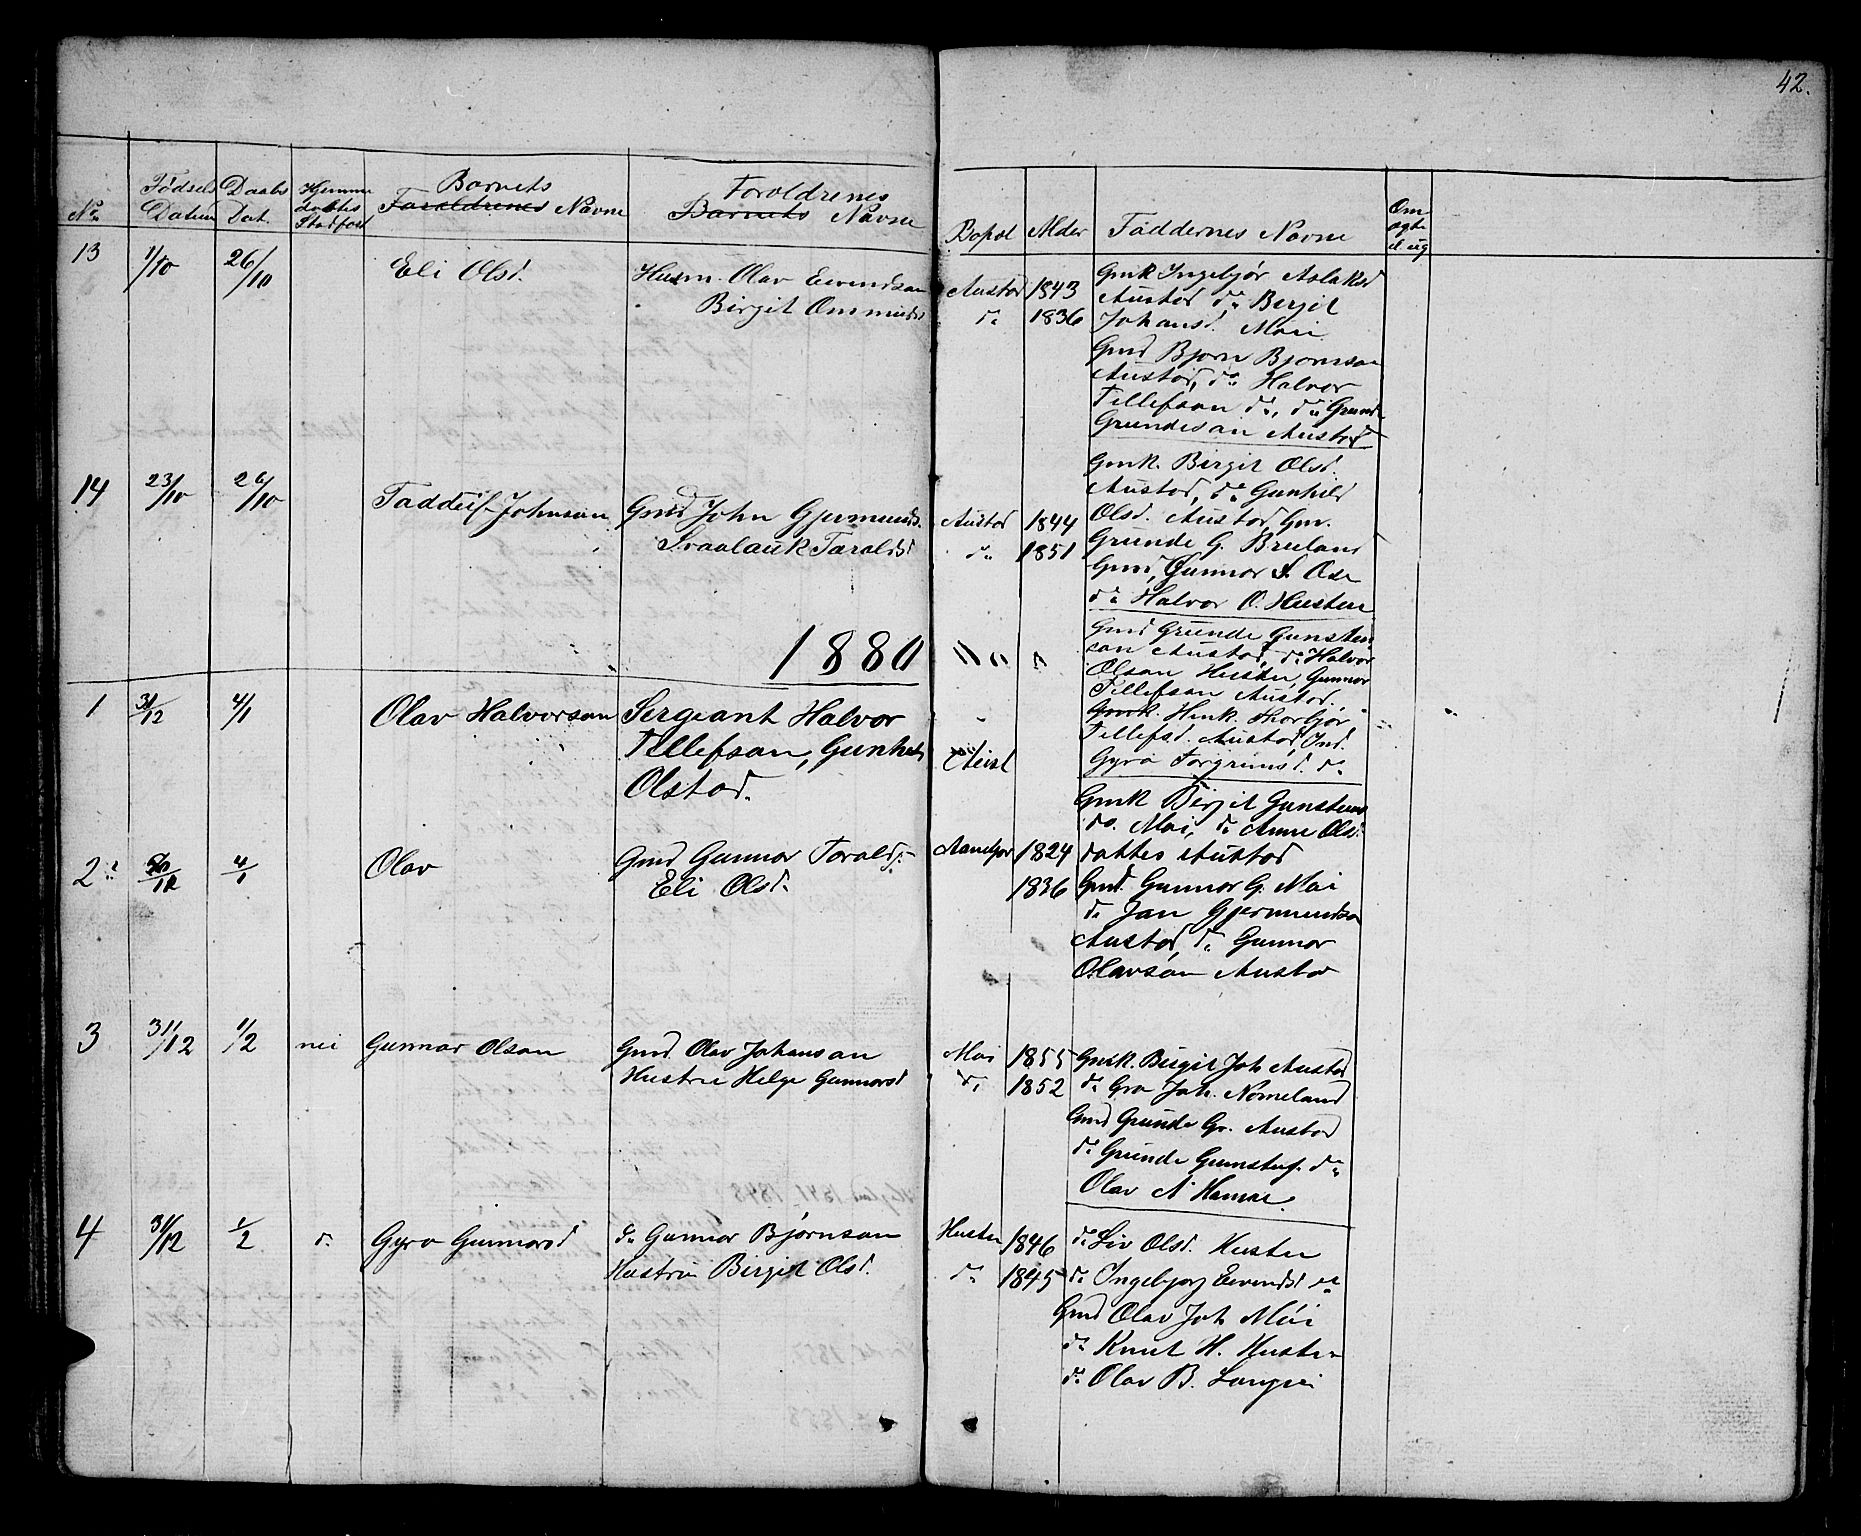 42.
No. Fødsels Daabs Hjemme Barnets Foroldrenes
Datum Dat. Døbtes Stadfæst Foroldrenes Navne Barnets Navne
Bopæl Alder Faddernes Navne
13 1/10 26/10 Eli Olsd. Husm. Olav Eivendson
Birgit Ommunds
Austad 1843
do 1836
Gmk Ingebjør Aslaksd
Austad, do Bergit
Johansd. Moi
Gmd Bjørn Bjørnson
Austad, do Halvor
Tellefson do, do Grunde
Grundesøn Austad
14 23/10 26/10 Taddeif Johnson Gmd John Gjermunds.
Svaalauk Taraldsd
Austad 1844
do 1851
Gmk. Birgit Olsd.
Austad, do Gunhild
Olsd. Austad, Gm.
Grunde G. Breiland
Gmd, Gunnar S. Ose
do Halvor O. Husten
1880
1 31/12 4/1 Olav Halvorson Sergeant Halvor
Tellefson, Gunhild
Olstad.
Gmd Grunde Gunsten
son Austad, do Halvor
Olson Husten, Gunnar
Tellefson Austad,
Gmk. Hmk. Thorbjør
Tellefsd. Austad, Ind.
Gyro Torgrimsd. do
2 /12 4/1 Olav Gmd Gunnar Toralds.
Eli Olsd.
1824
1836
Gmk Birgit Gunstens
do. Moi, do Anne Ols
dattes Austad
Gmd. Gunnar G. Moi
do Jan Gjermundson
Austad, do Gunnar
Olavson Austad
3 31/12 1/2 nei Gunnar Olson Gmd. Olav Johanson
Hustru Helge Gunnarsd
Moi 1855
do 1852
Gmk. Birgit Joh Austad
do Gro Joh. Nomeland
Gmd Grunde Gr. Austad
do Grunde Gunstenf. do
Olav A Homme.
4 31/12 1/2 do Gyro Gunnarsd do Gunnar Bjørnson
Hustru Birgit Olsd.
Husten 1846
do 1845
do Liv Olsd. Husten
do Ingebjorg Eivendsd do
Gmd Olav Joh Moi
do Knut H. Husten
do Olav B. Langeei